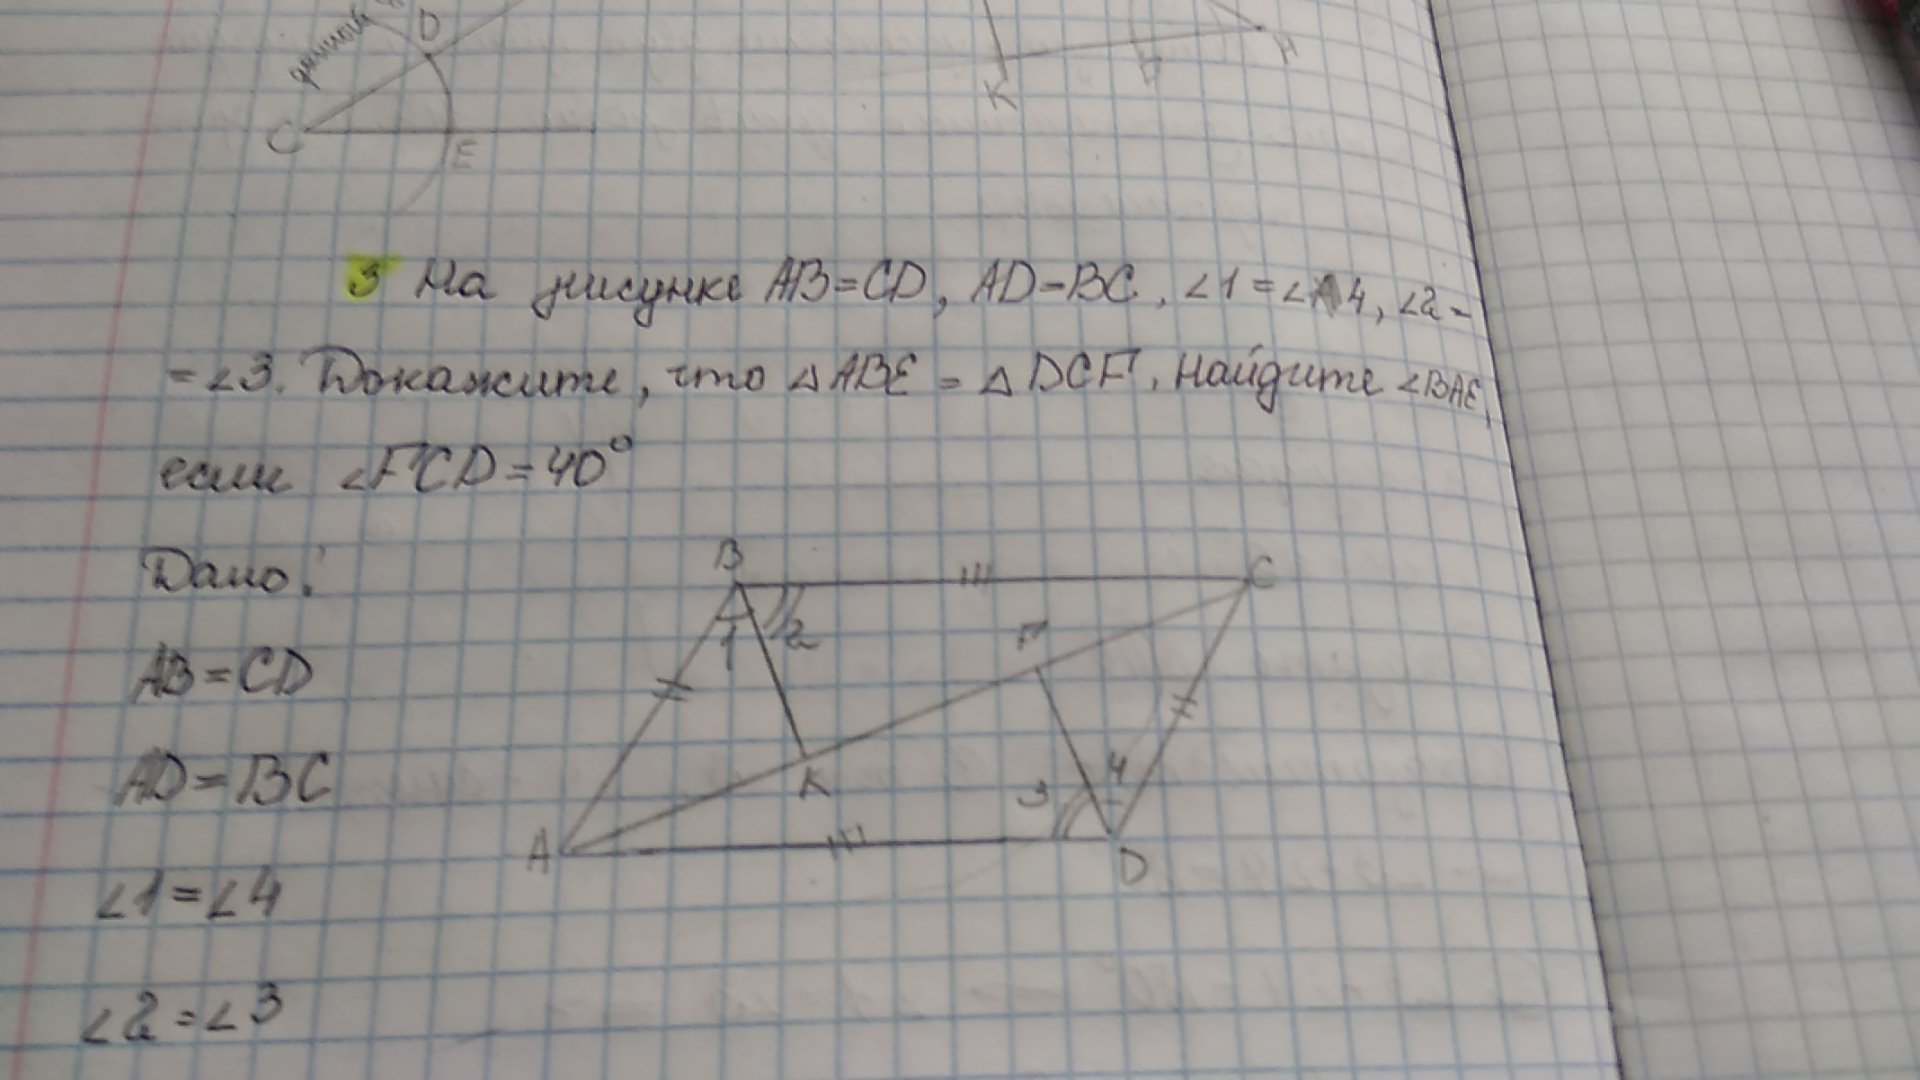 данной
D
C
E
K
D
H
3 На рисунке AB=CD, AD=BC, ∠1=∠4, ∠2=
=∠3. Докажите, что △ABE = △DCF. Найдите ∠BAE,
если ∠FCD=40°
Дано:
AB=CD
AD=BC
∠1=∠4
∠2=∠3
B
C
1
2
F
K
3
4
A
D